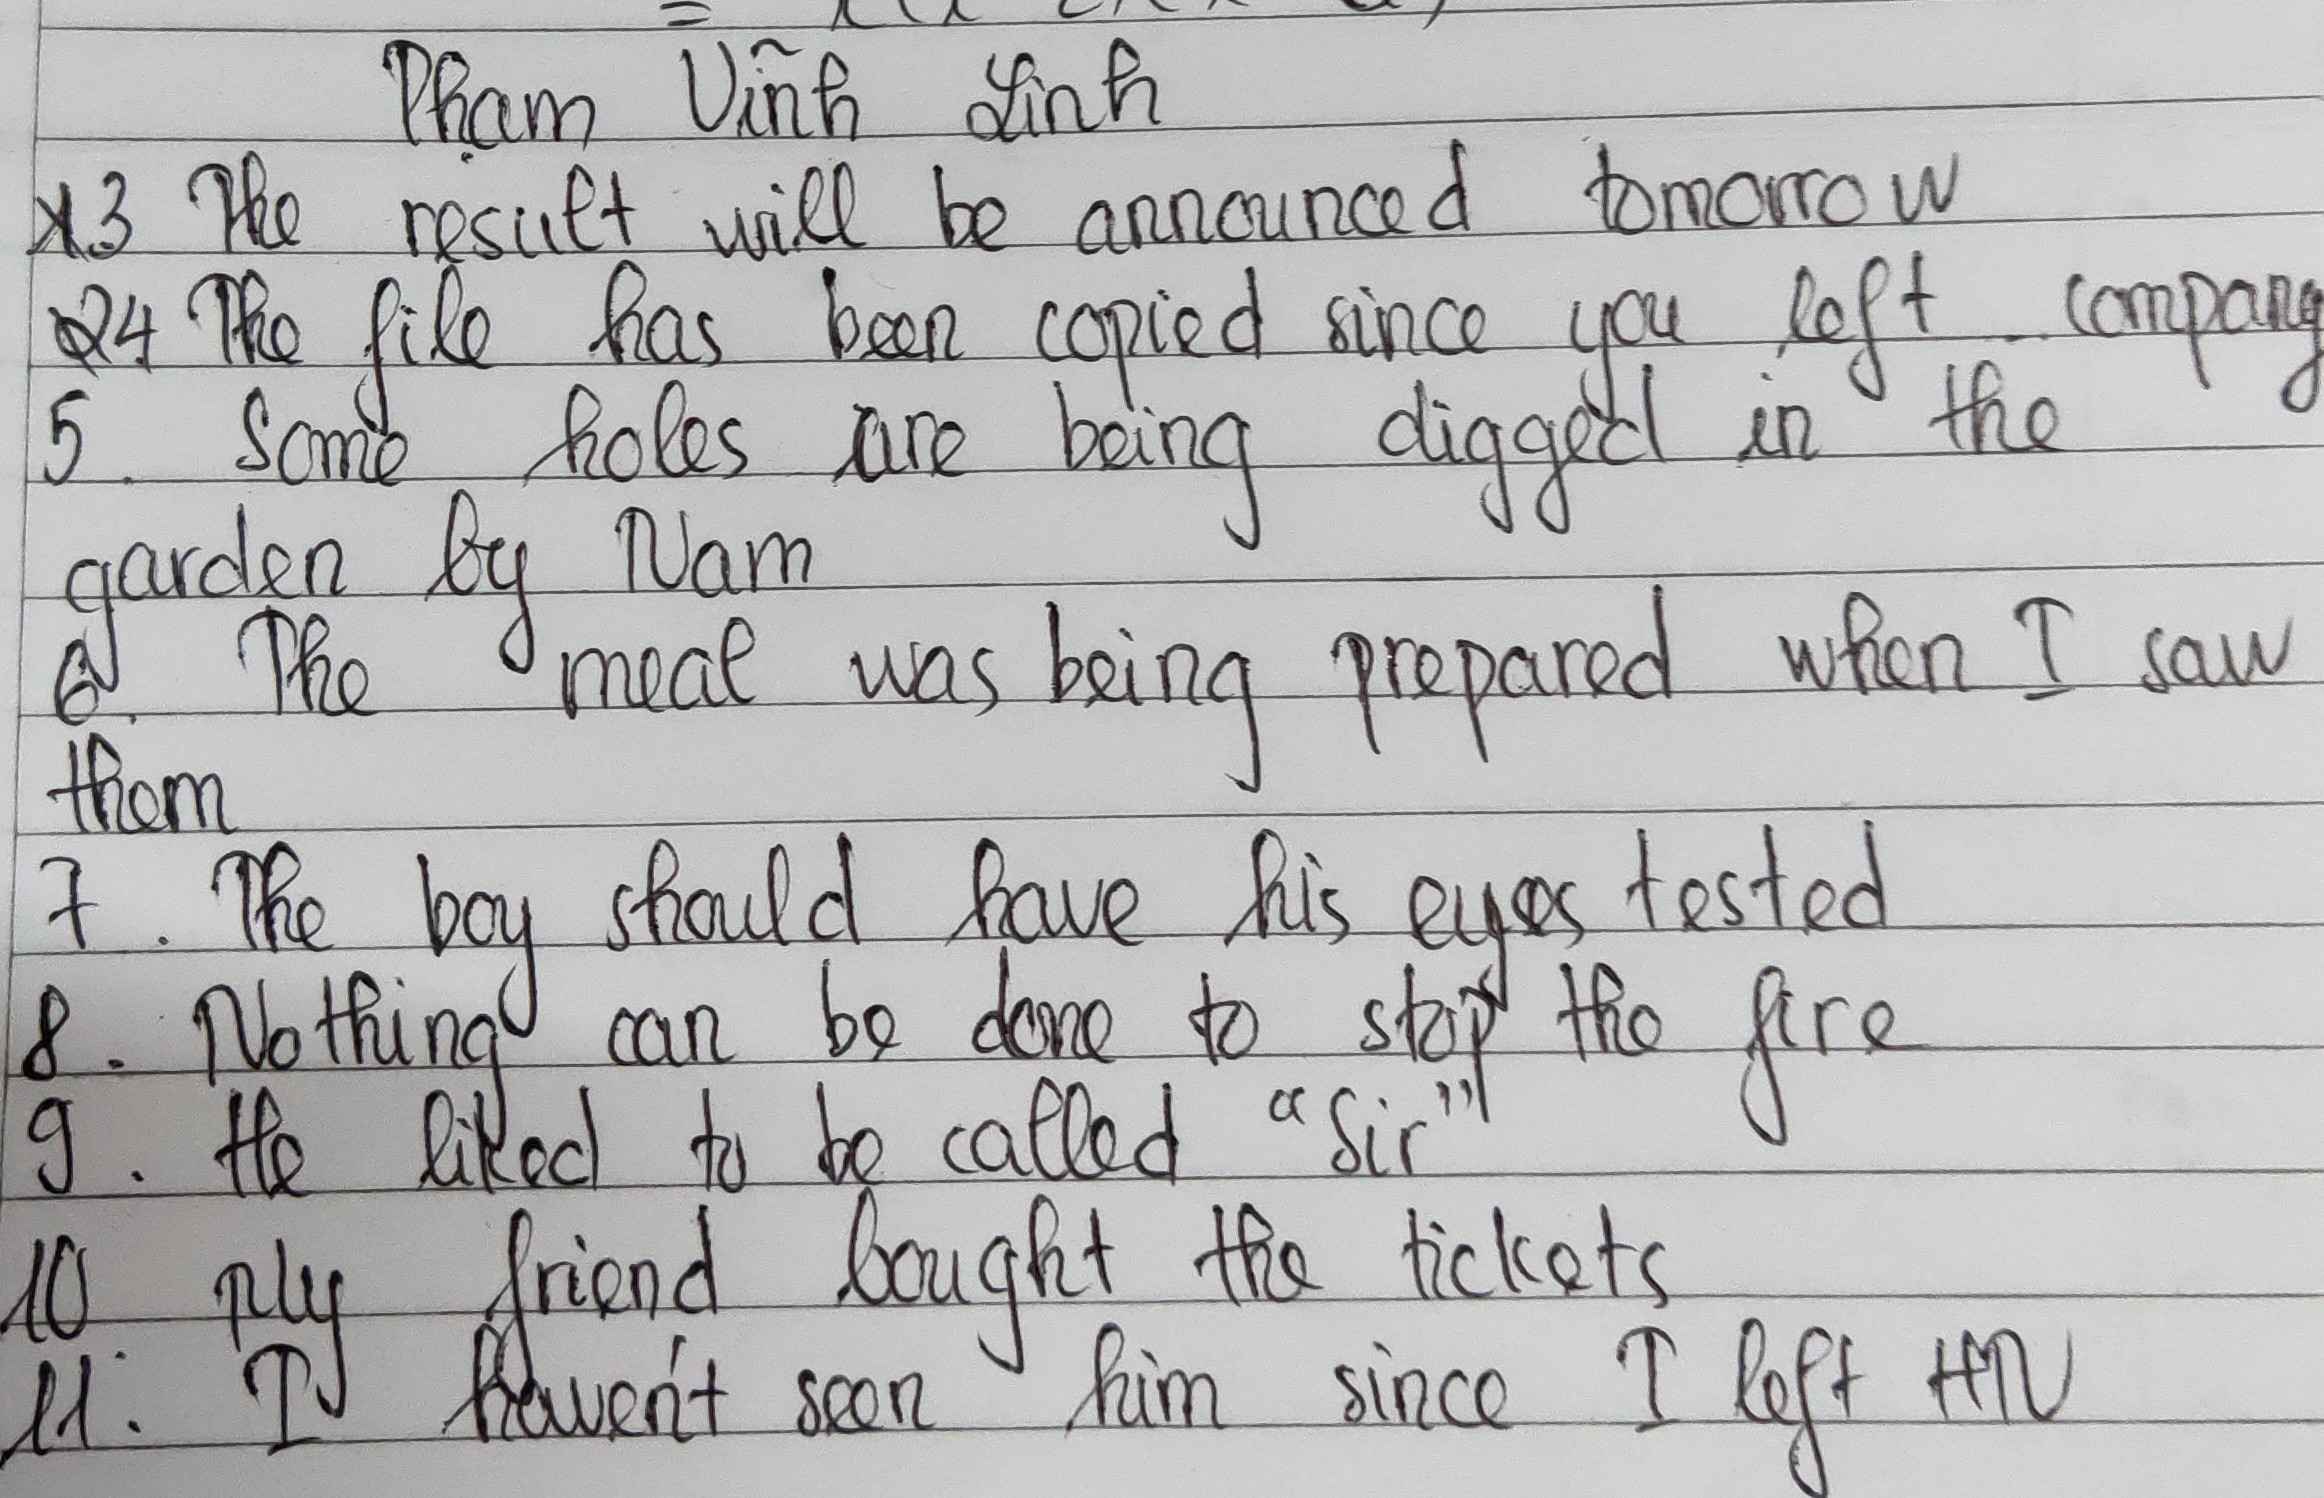 Phạm Vĩnh Linh
3 The result will be announced tomorrow
4 The file has been copied since you left company
5. Some holes are being digged in the
garden by Nam
6. The meal was being prepared when I saw
them
7. The boy should have his eyes tested
8. Nothing can be done to stop the fire
9. He liked to be called "Sir"
10 My friend bought the tickets
11. I haven't seen him since I left HN